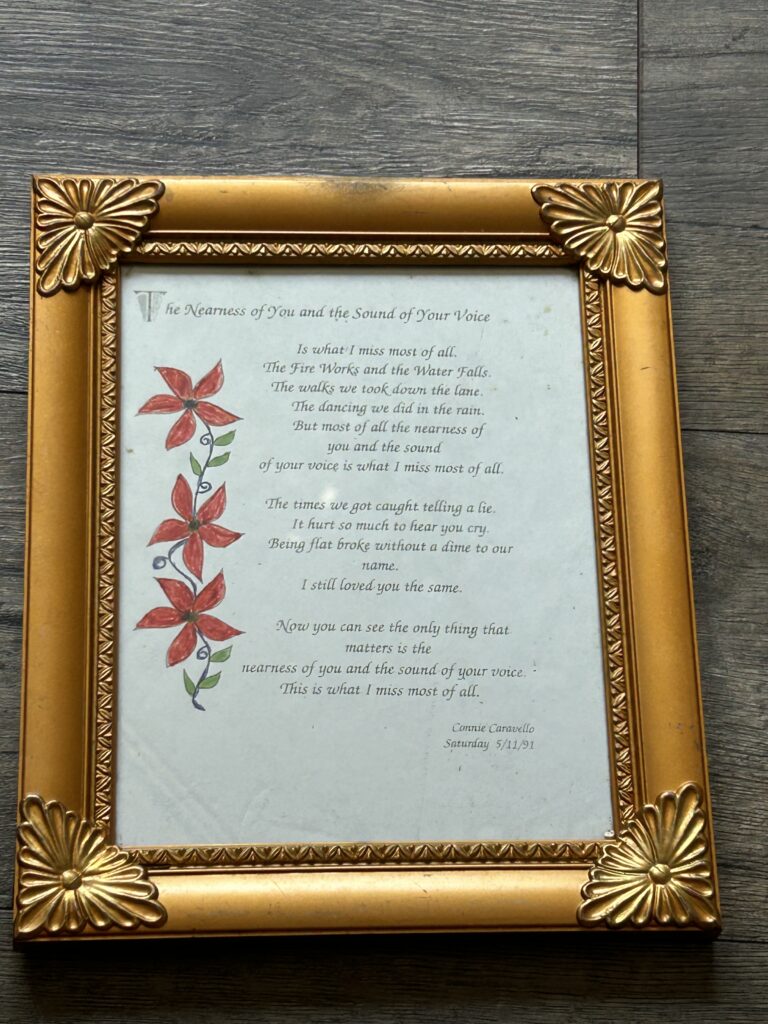 The Nearness of You and the Sound of Your Voice
Is what I miss most of all.
The Fire Works and the Water Falls.
The walks we took down the lane.
The dancing we did in the rain.
But most of all the nearness of
you and the sound
of your voice is what I miss most of all.
The times we got caught telling a lie.
It hurt so much to hear you cry.
Being flat broke without a dime to our
name.
I still loved you the same.
Now you can see the only thing that
matters is the
nearness of you and the sound of your voice.
This is what I miss most of all.
Connie Caravello
Saturday 5/11/91